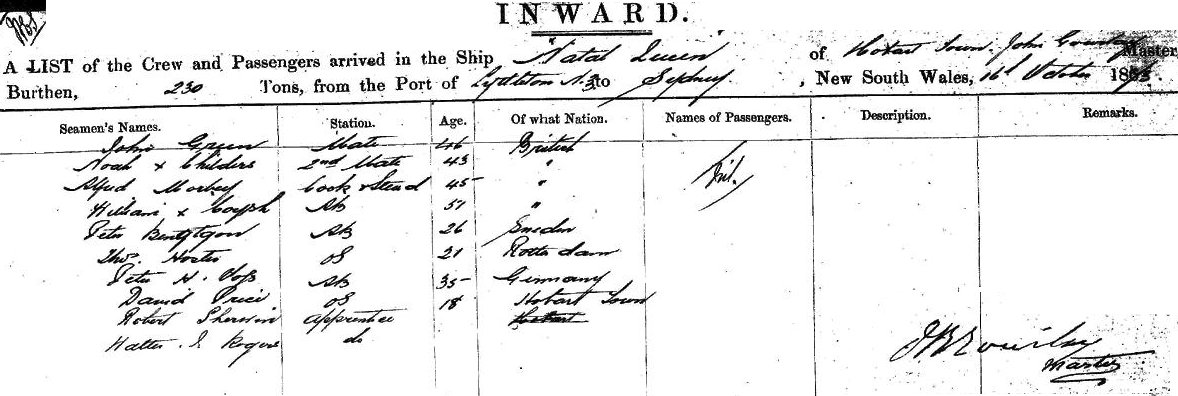 INWARD.
A LIST of the Crew and Passengers arrived in the Ship "Natal Queen" of Hobart Town. John Master
Burthen, 230 Tons, from the Port of Lyttleton N.Z to Sydney, New South Wales, 16th October 18
Seamen's Names. Station. Age. Of what Nation. Names of Passengers. Description. Remarks.
John Green Mate 46 British
Noah x Childers 2nd Mate 43 "
Alfred Cook & Steward 45 " Nil.
William x AB 51 "
Peter AB 26 Sweden
Thos. OS 21 Rotterdam
Peter H. Voss AB 35 Germany
David Price OS 18 Hobart Town
Robert Sherwin Apprentice
Walter J. do
Master